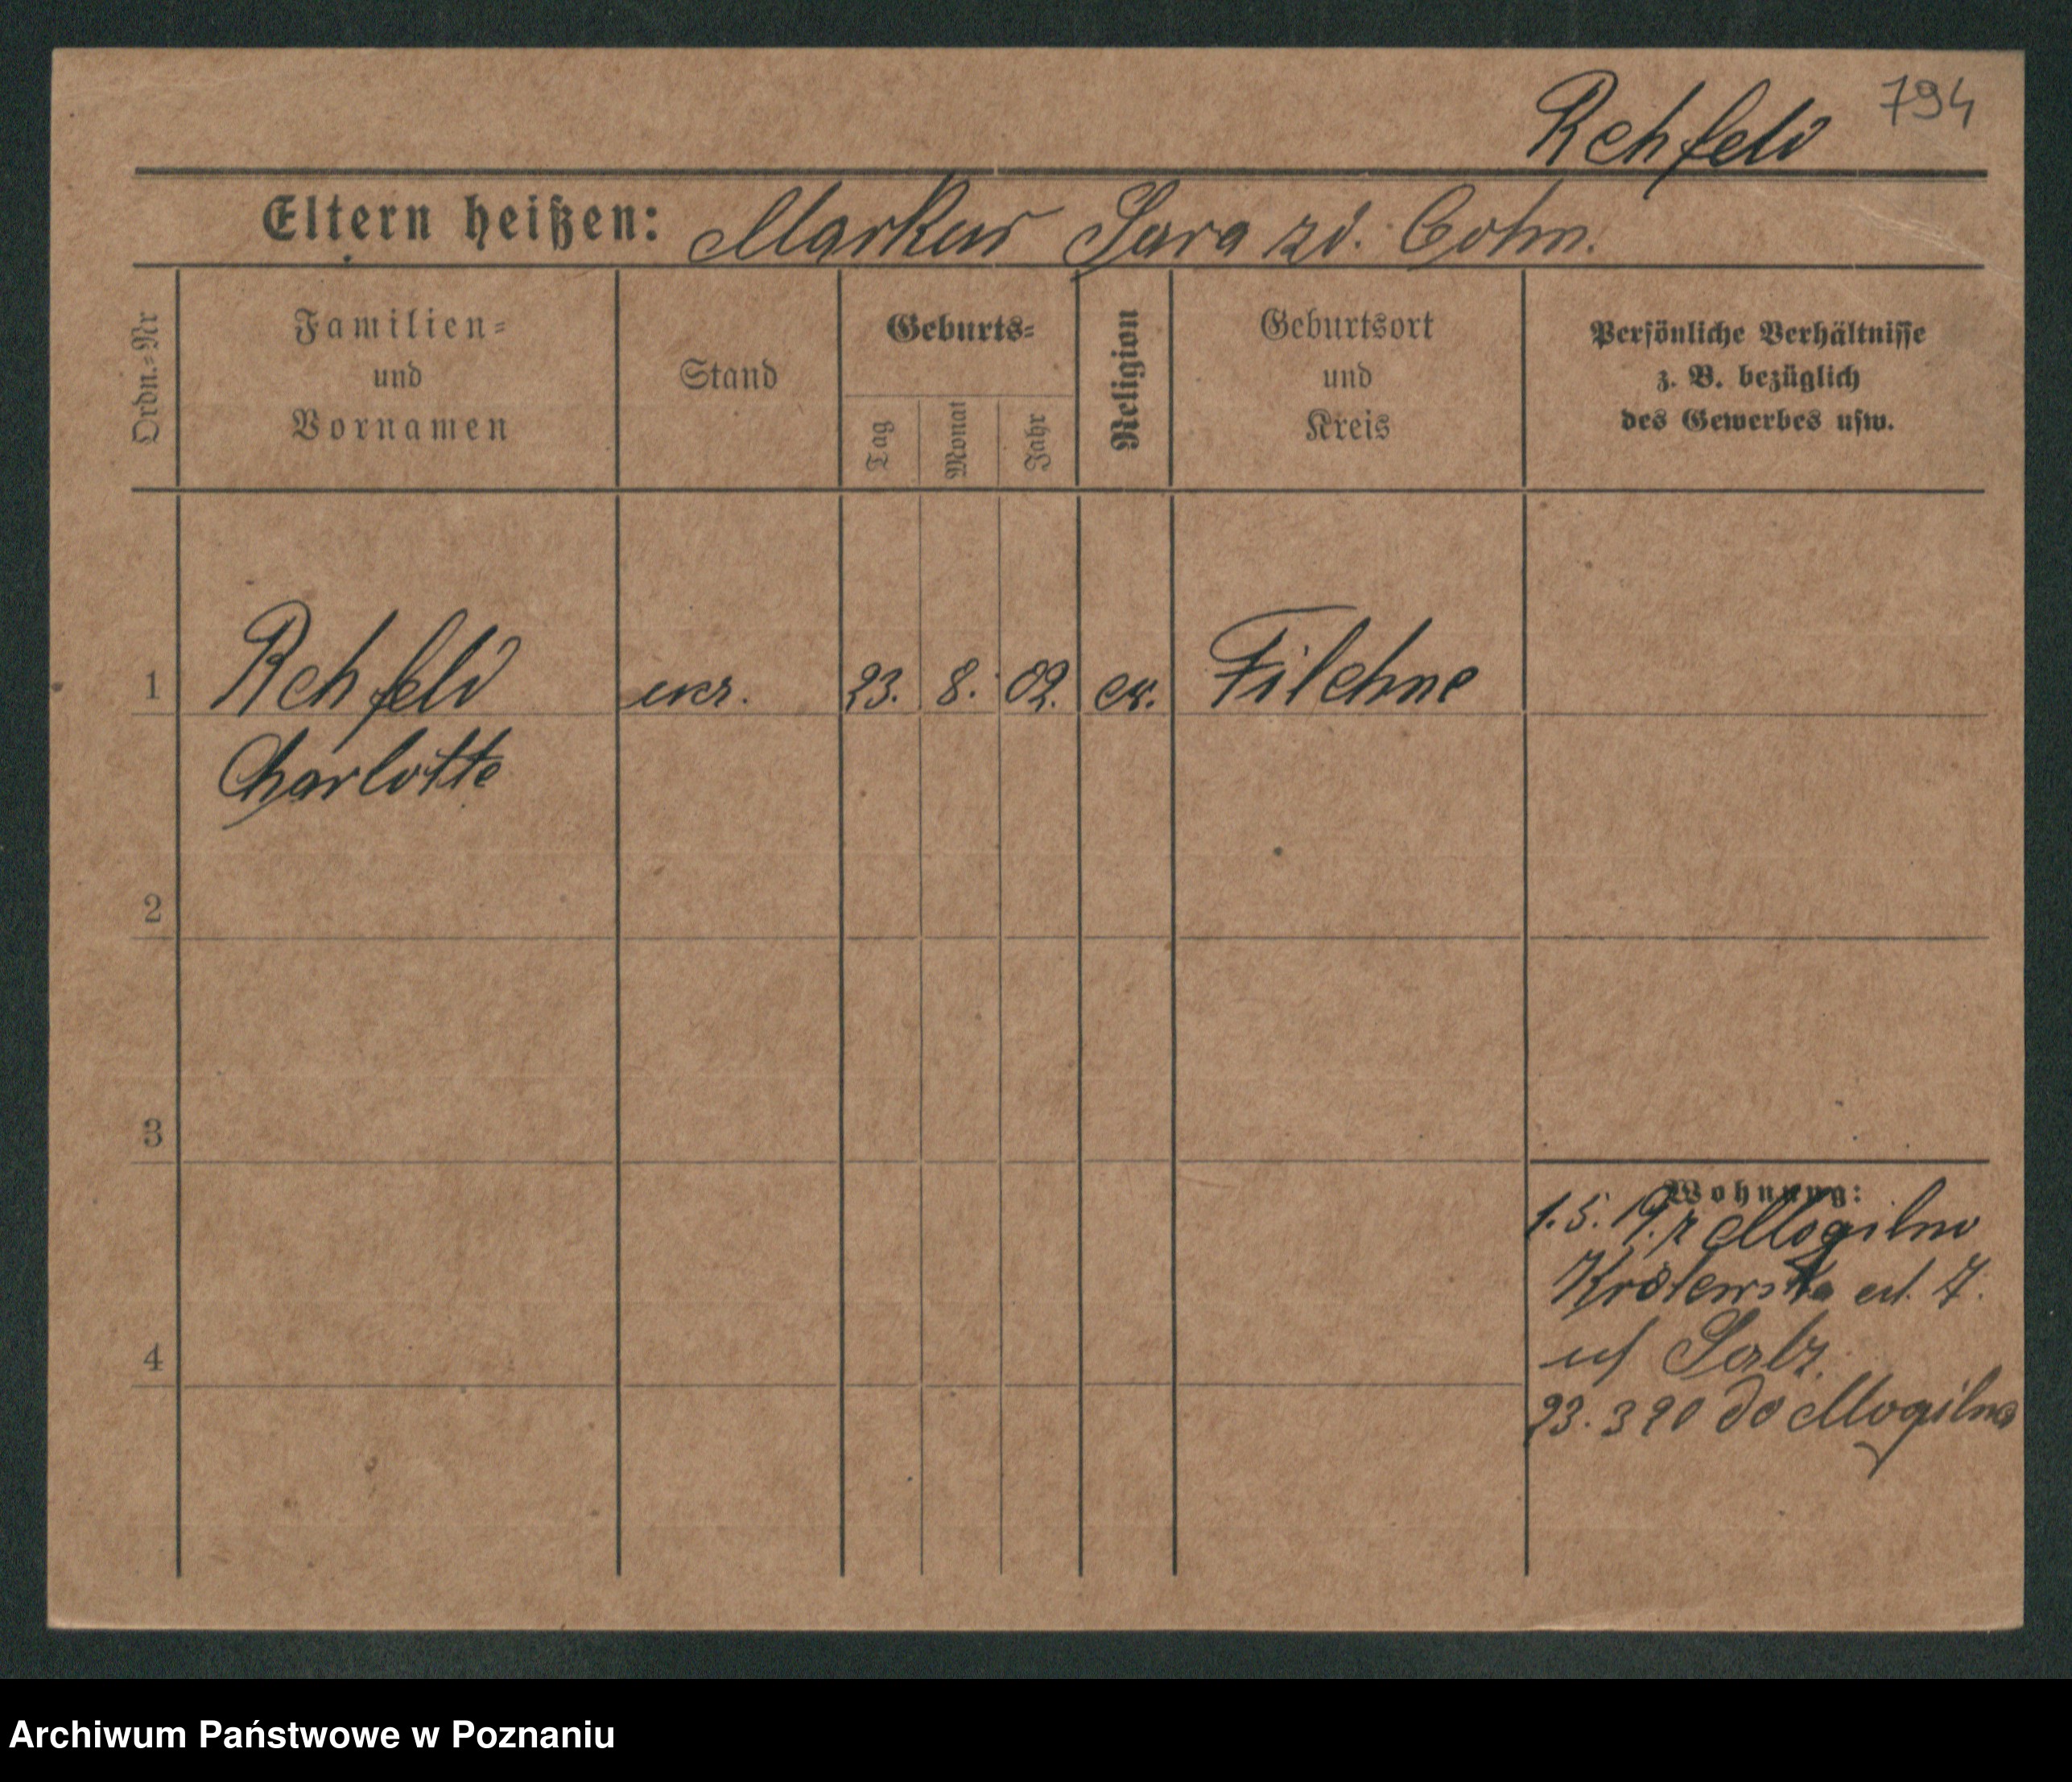 794
Rehfeld
Eltern heißen: Markus Sara zd. Cohn.
Ordn.=Nr
Familien=
und
Vornamen
Stand
Geburts=
Tag
Monat
Jahr
Religion
Geburtsort
und
Kreis
Persönliche Verhältnisse
z. B. bezüglich
des Gewerbes usw.
1 Rehfeld 23. 8. 02. Filehne
Charlotte
2
3
4
Wohnung:
1.5. 19. z Mogilno
7.
23. 3 20 do Mogilna
Archiwum Państwowe w Poznaniu